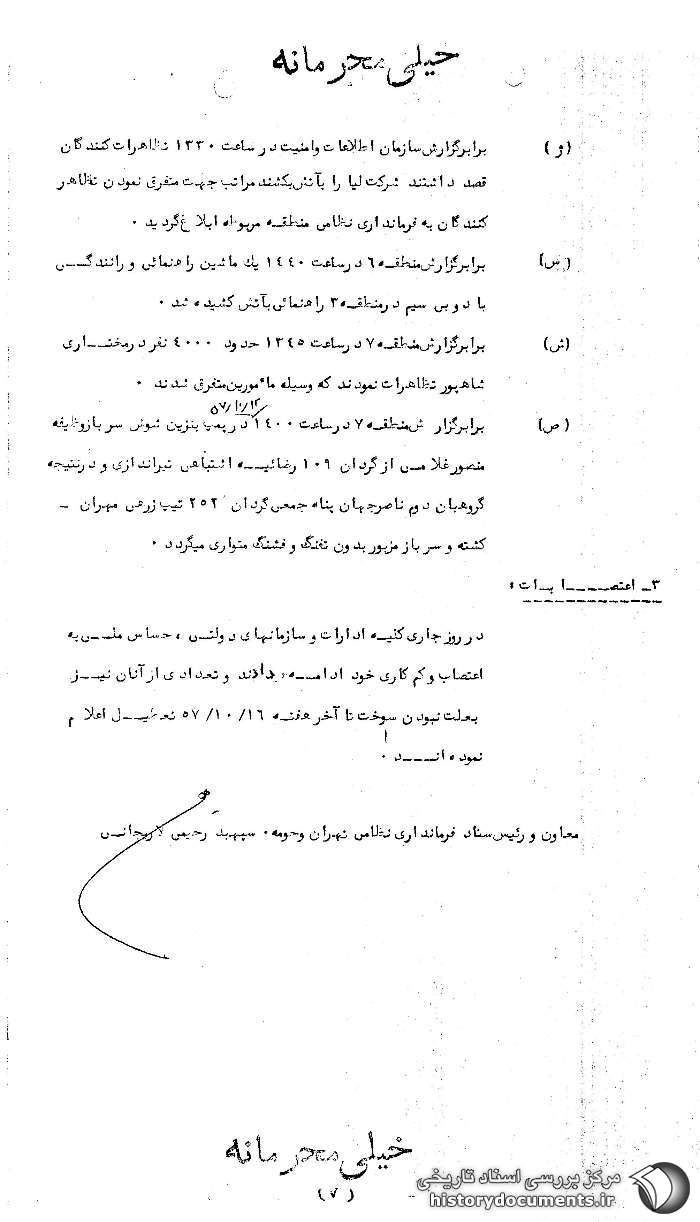 خیلی محرمانه
(و) برابرگزارش سازمان اطلاعات وامنیت در ساعت ۱۳۳۰ تظاهرات کنندگان
قصد داشتند شرکت لیا را بآتش بکشند مراتب جهت متفرق نمودن تظاهر
کنندگان به فرمانداری نظامی منطقه مربوطه ابلاغ گردید ۰
(س) برابرگزارش منطقه ۶ در ساعت ۱۴۴۰ یک ماشین راهنمائی و رانندگی
با دو بی سیم در منطقه ۳ راهنمائی بآتش کشیده شد ۰
(ش) برابرگزارش منطقه ۷ در ساعت ۱۳۴۵ حدود ۴۰۰۰ نفر در مختاری
شاهپور تظاهرات نمودند که وسیله مامورین متفرق شدند ۰
۵۷/۱۰/۱۲
(ص) برابرگزارش منطقه ۷ در ساعت ۱۴۰۰ در پمپ بنزین شوش سرباز وظیفه
منصور غلامی از گردان ۱۰۹ رضائیه اشتباهی تیراندازی و در نتیجه
گروهبان دوم ناصر جهان پناه جمعی گردان ۲۵۲ تیپ زرهی تهران -
کشته و سرباز مزبور بدون تفنگ و فشنگ متواری میگردد ۰
۳ـ اعتصابات :
در روز جاری کلیه ادارات و سازمانهای دولتی ، حساس ملی به
اعتصاب و کم کاری خود ادامه دادند و تعدادی از آنان نیز
بعلت نبودن سوخت تا آخر هفته ۵۷/۱۰/۱۶ تعطیل اعلام
نموده اند ۰
معاون و رئیس ستاد فرمانداری نظامی تهران و حومه ۰ سپهبد رحیمی لاریجانی
خیلی محرمانه
(۷)
مرکز بررسی اسناد تاریخی
historydocuments.ir